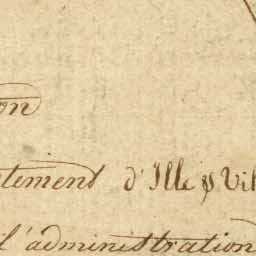 on
tement d'Ille & Vil
l'administration